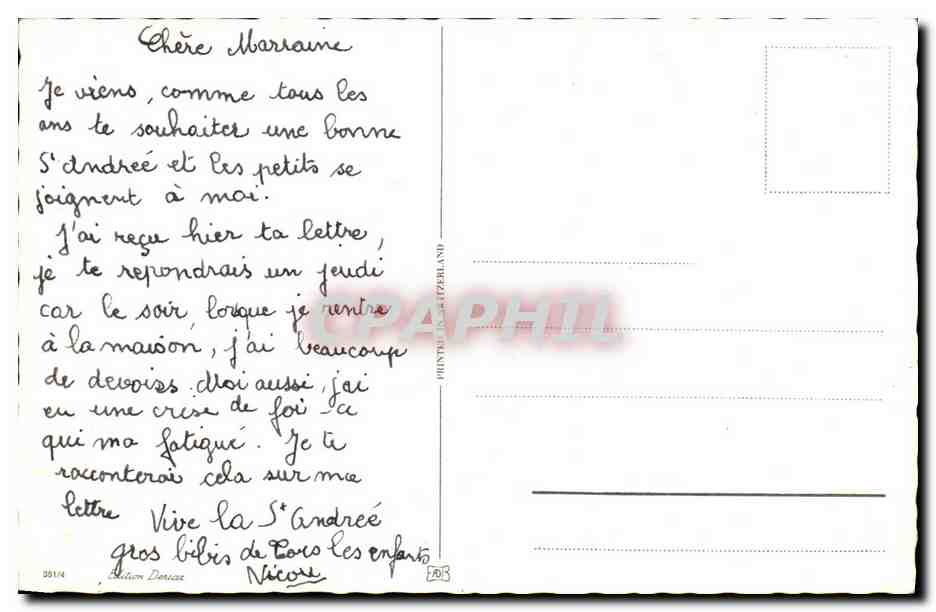 Chère Marraine
Je viens, comme tous les
ans te souhaiter une bonne
St Andreé et les petits se
joignent à moi.
J'ai reçu hier ta lettre,
je te repondrais un jeudi
car le soir, lorsque je rentre
à la maison, j'ai beaucoup
de devoirs. Moi aussi, j'ai
eu une crise de foi - ce
qui ma fatigué. Je te
raconterai cela sur ma
lettre Vive la St Andreé
gros bibis de tous les enfants
Nicou
351/4 Edition
PRINTED IN SWITZERLAND
CPAPHIL